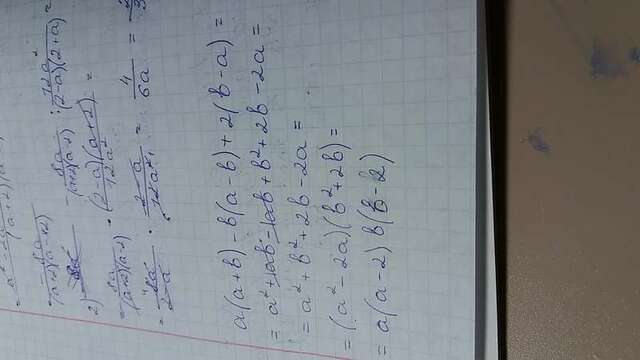 = a² - 2a / (a+2)(a-
= -8a / (a+2)(a-2)
2) - 8a / (a+2)(a-2) : 12a² / (2-a)(2+a) =
= -8a / (a+2)(a-2) · (2-a)(a+2) / 12a² =
= 8a / 2-a · 2-a / 12a² = 4 / 6a = 2 / 3
a(a+b) - b(a-b) + 2(b-a) =
= a² + ab - ab + b² + 2b - 2a =
= a² + b² + 2b - 2a =
= (a² - 2a)(b² + 2b) =
= a(a-2) b(b-2)